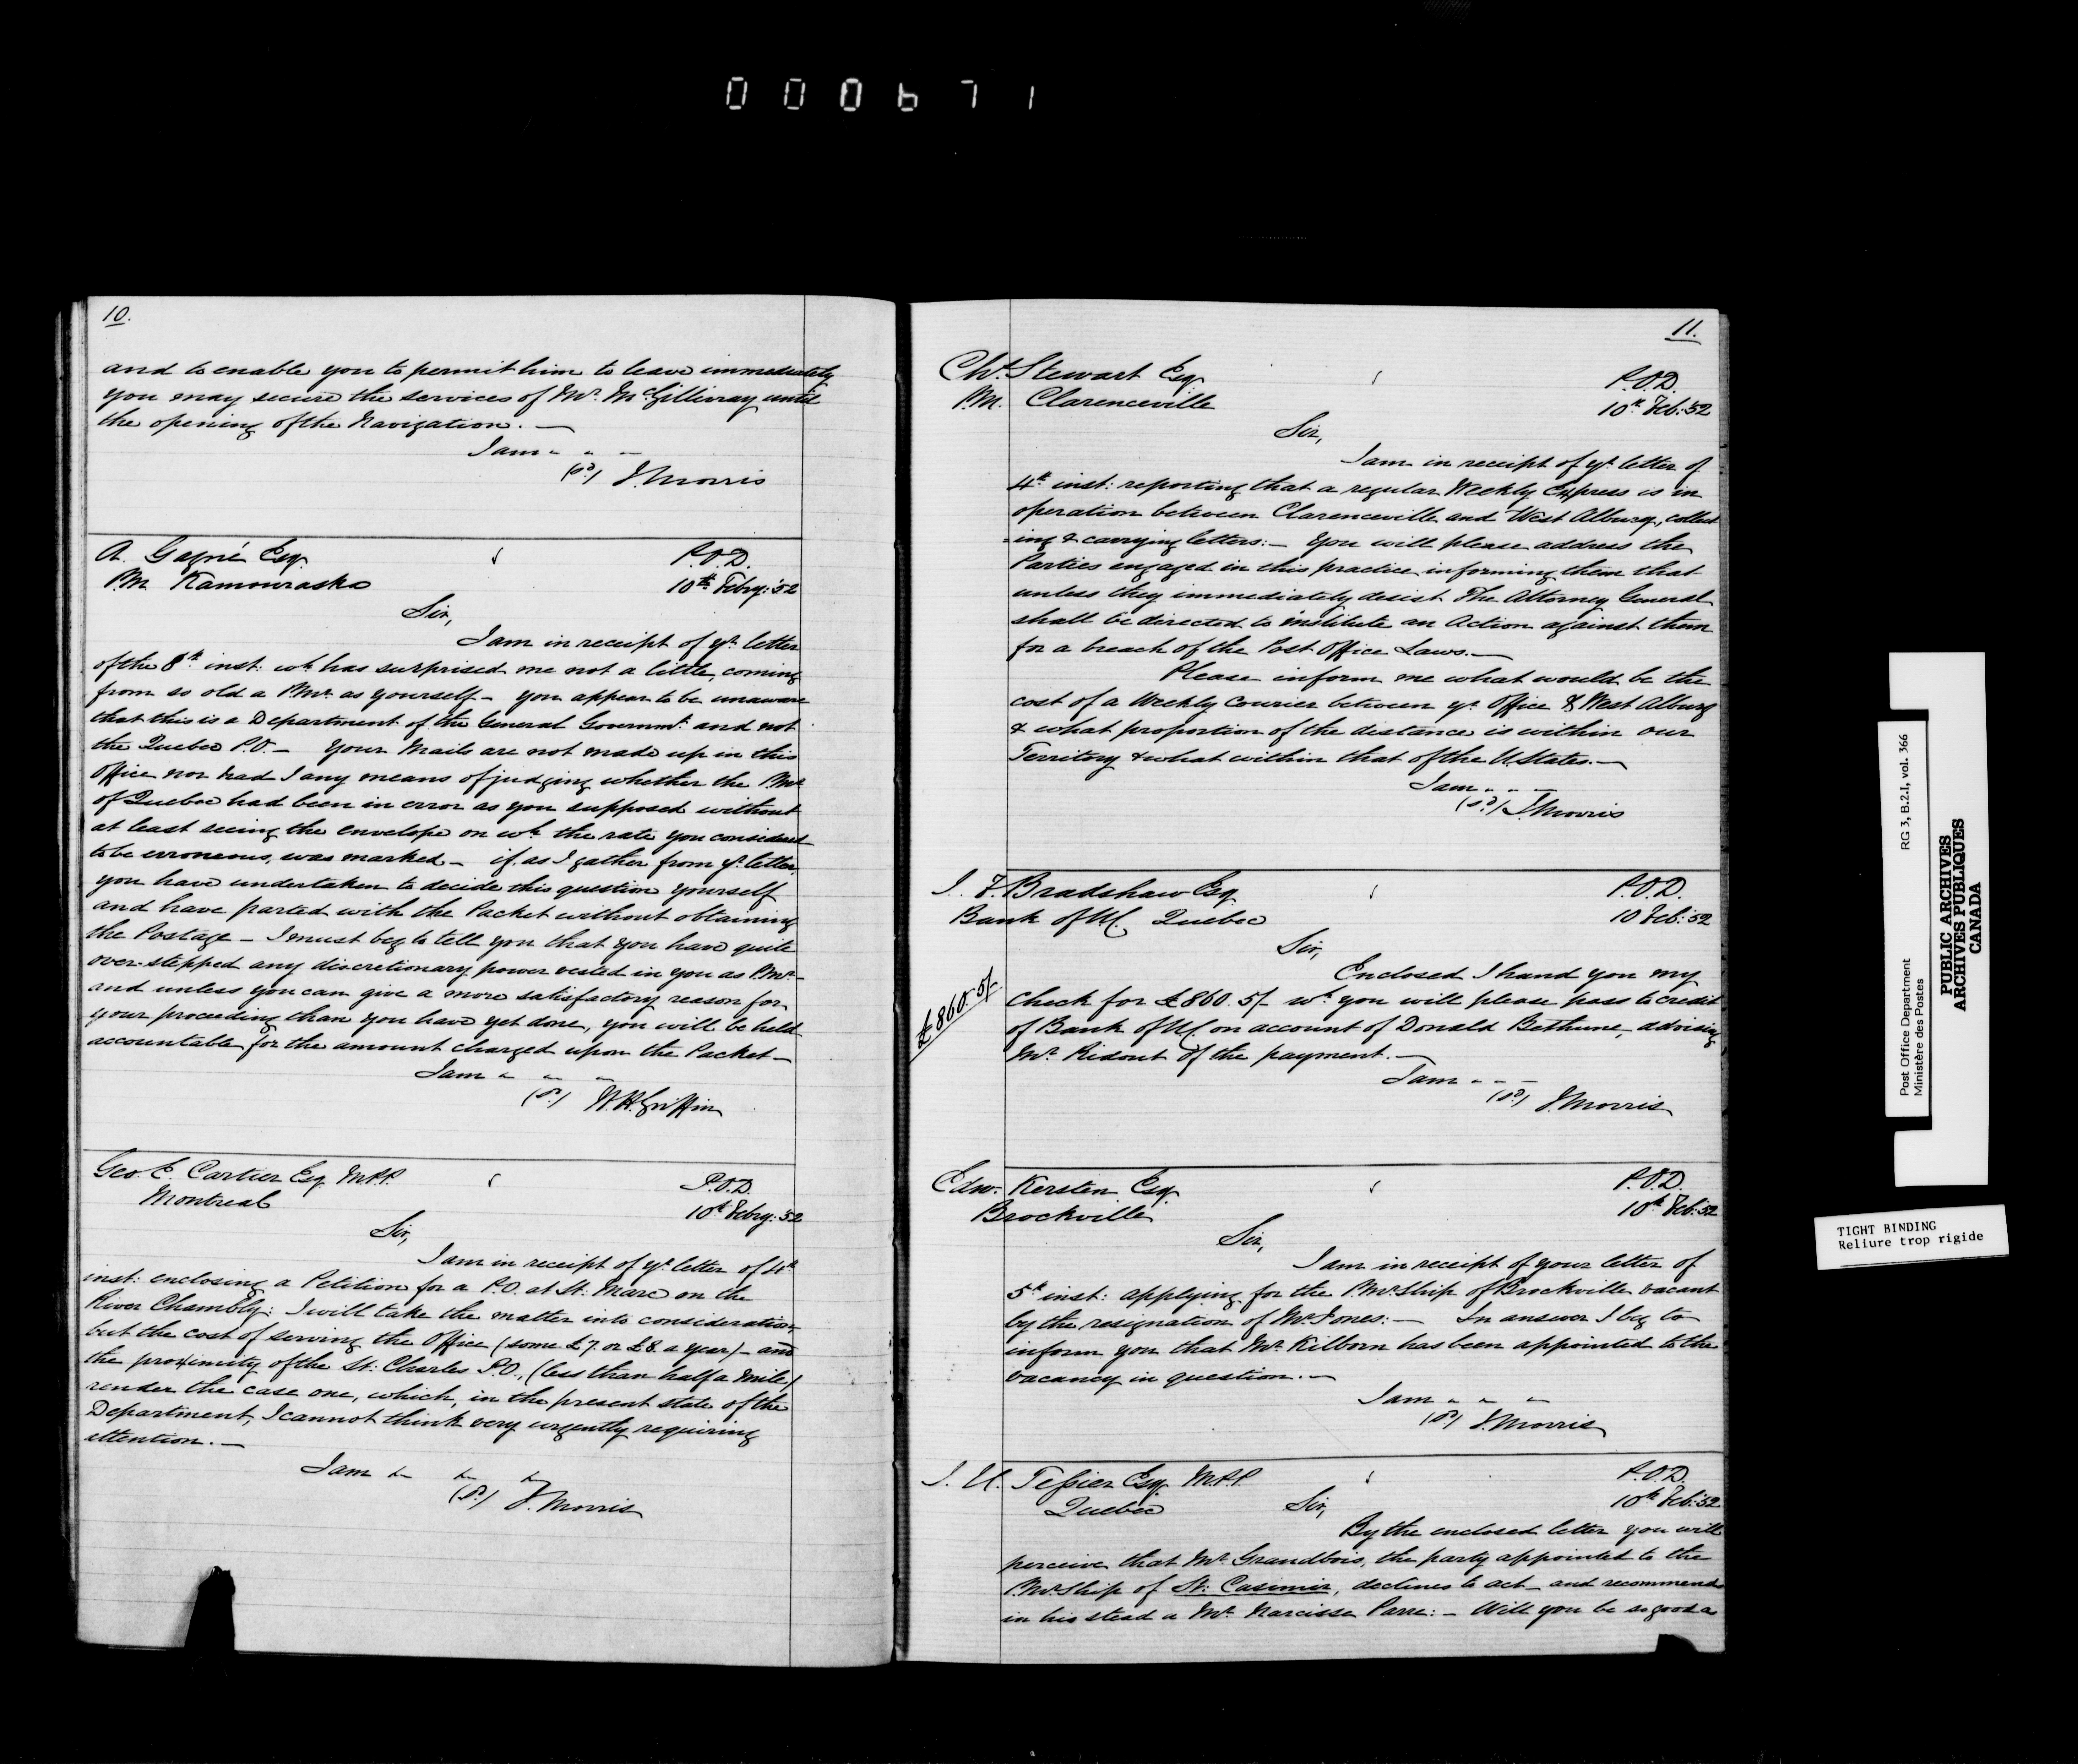 000671
10.
and to enable you to permit him to leave immediately
you may secure the services of Mr. McGillivray until
the opening of the Navigation. —
I am " " "
(sd) J. Morris
A. Gagné Esq.
P.M. Kamouraska
P.O.D.
10th Febry: '52
Sir,
I am in receipt of yr. letter
of the 8th inst: wh. has surprised me not a little, coming
from so old a P.Mr. as yourself – you appear to be unaware
that this is a Department of the General Governmt. and not
the Quebec P.O. – Your Mails are not made up in this
Office nor had I any means of judging whether the P.Mr.
of Quebec had been in error as you supposed without
at least seeing the envelope on wh. the rate you considered
to be erroneous, was marked – if, as I gather from yr. letter,
you have undertaken to decide this question yourself
and have parted with the Packet without obtaining
the Postage – I must beg to tell you that you have quite
over-stepped any discretionary power vested in you as P.Mr. –
and unless you can give a more satisfactory reason for
your proceeding than you have yet done, you will be held
accountable for the amount charged upon the Packet –
I am " " "
(sd) W.H. Griffin
Geo. E. Cartier Esq. M.P.P.
Montreal
P.O.D.
10th Febry: '52
Sir,
I am in receipt of yr. letter of 4th
inst: enclosing a Petition for a P.O. at St: Marc on the
River Chambly: I will take the matter into consideration,
but the cost of serving the Office (some £7. or £8. a year) – and
the proximity of the St: Charles P.O., (less than half a Mile)
render the case one, which, in the present state of the
Department, I cannot think very urgently requiring
attention. —
I am " " "
(sd) J. Morris
11.
Chs. Stewart Esq.
P.M. Clarenceville
P.O.D.
10th Feb: '52
Sir,
I am in receipt of yr. letter of
4th inst: reporting that a regular Weekly Express is in
operation between Clarenceville and West Alburg, collect
=ing & carrying letters: – You will please address the
Parties engaged in this practice informing them that
unless they immediately desist The Attorney General
shall be directed to institute an Action against them
for a breach of the Post Office Laws. —
Please inform me what would be the
cost of a Weekly Courier between yr. Office & West Alburg
& what proportion of the distance is within our
Territory & what within that of the U. States. —
I am " " "
(sd) J. Morris
J. F. Bradshaw Esq.
Bank of U.C. Quebec
P.O.D.
10 Feb: '52
Sir,
Enclosed I hand you my
£860.5/-
Check for £860.5/- wh. you will please pass to credit
of Bank of U.C. on account of Donald Bethune, advising
Mr. Ridout of the payment. —
I am " " "
(sd) J. Morris
Edw. Kersten Esq.
Brockville
P.O.D.
10th Feb: '52
Sir,
I am in receipt of your letter of
5th inst: applying for the P.Mr.Ship of Brockville vacant
by the resignation of Mr. Jones: — In answer I beg to
inform you that Mr. Kilborn has been appointed to the
vacancy in question. —
I am " " "
(sd) J. Morris
J. U. Tessier Esq. M.P.P.
Quebec
P.O.D.
10th Feb: '52
Sir,
By the enclosed letter you will
perceive that Mr. Grandbois, the party appointed to the
P.Mr.Ship of St: Casimir, declines to act – and recommends
in his stead a Mr. Narcisse Parre: – Will you be so good as
Post Office Department
Ministère des Postes
RG 3, B.2.I, vol. 366
PUBLIC ARCHIVES
ARCHIVES PUBLIQUES
CANADA
TIGHT BINDING
Reliure trop rigide